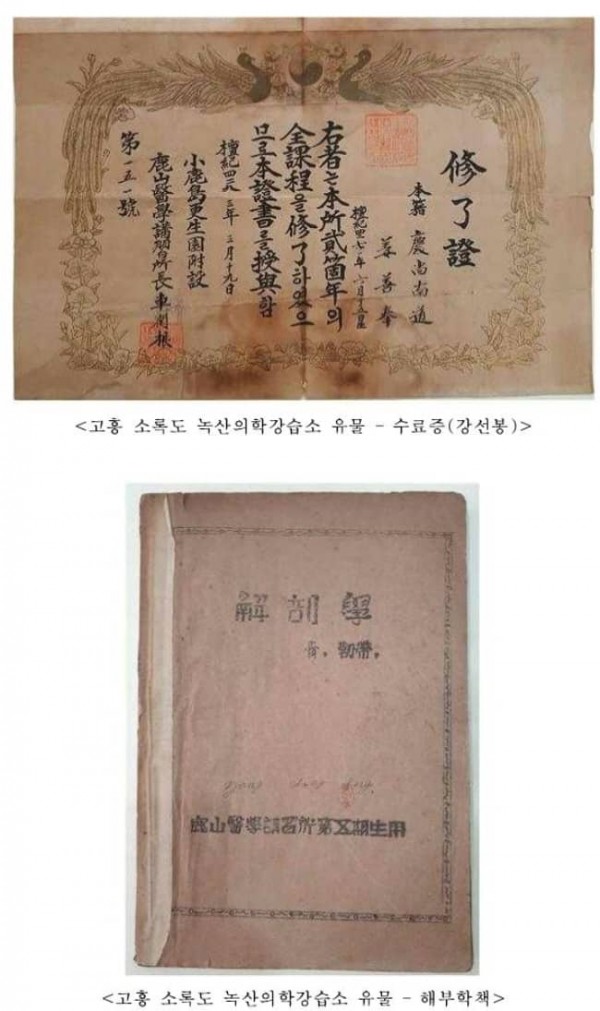 修了證
本籍 慶尚南道
姜善奉
檀紀四二七二年 六月十五日生
右者는本所貳箇年의
全課程을修了하였으
므로本證書를授與함
檀紀四二 三年 三月十九日
小鹿島更生園附設
鹿山醫學講習所長 車 根
第一五一號
<고흥 소록도 녹산의학강습소 유물 - 수료증(강선봉)>
解剖學
骨, 靭帶,
鹿山醫學講習所第五期生用
<고흥 소록도 녹산의학강습소 유물 - 해부학책>